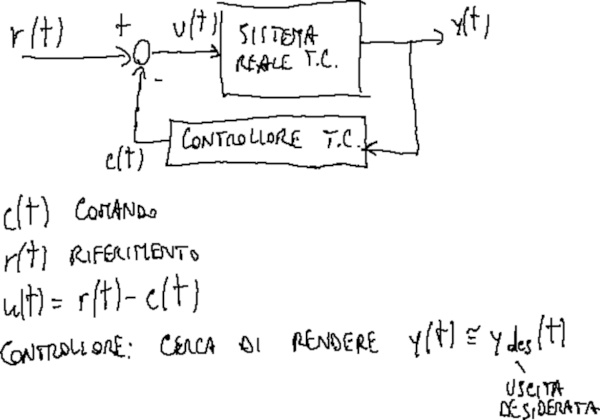 r(t) + u(t) SISTEMA y(t)
REALE T.C.
-
CONTROLLORE T.C.
c(t)
c(t) COMANDO
r(t) RIFERIMENTO
u(t) = r(t) - c(t)
CONTROLLORE: CERCA DI RENDERE y(t) ≅ y des (t)
USCITA
DESIDERATA